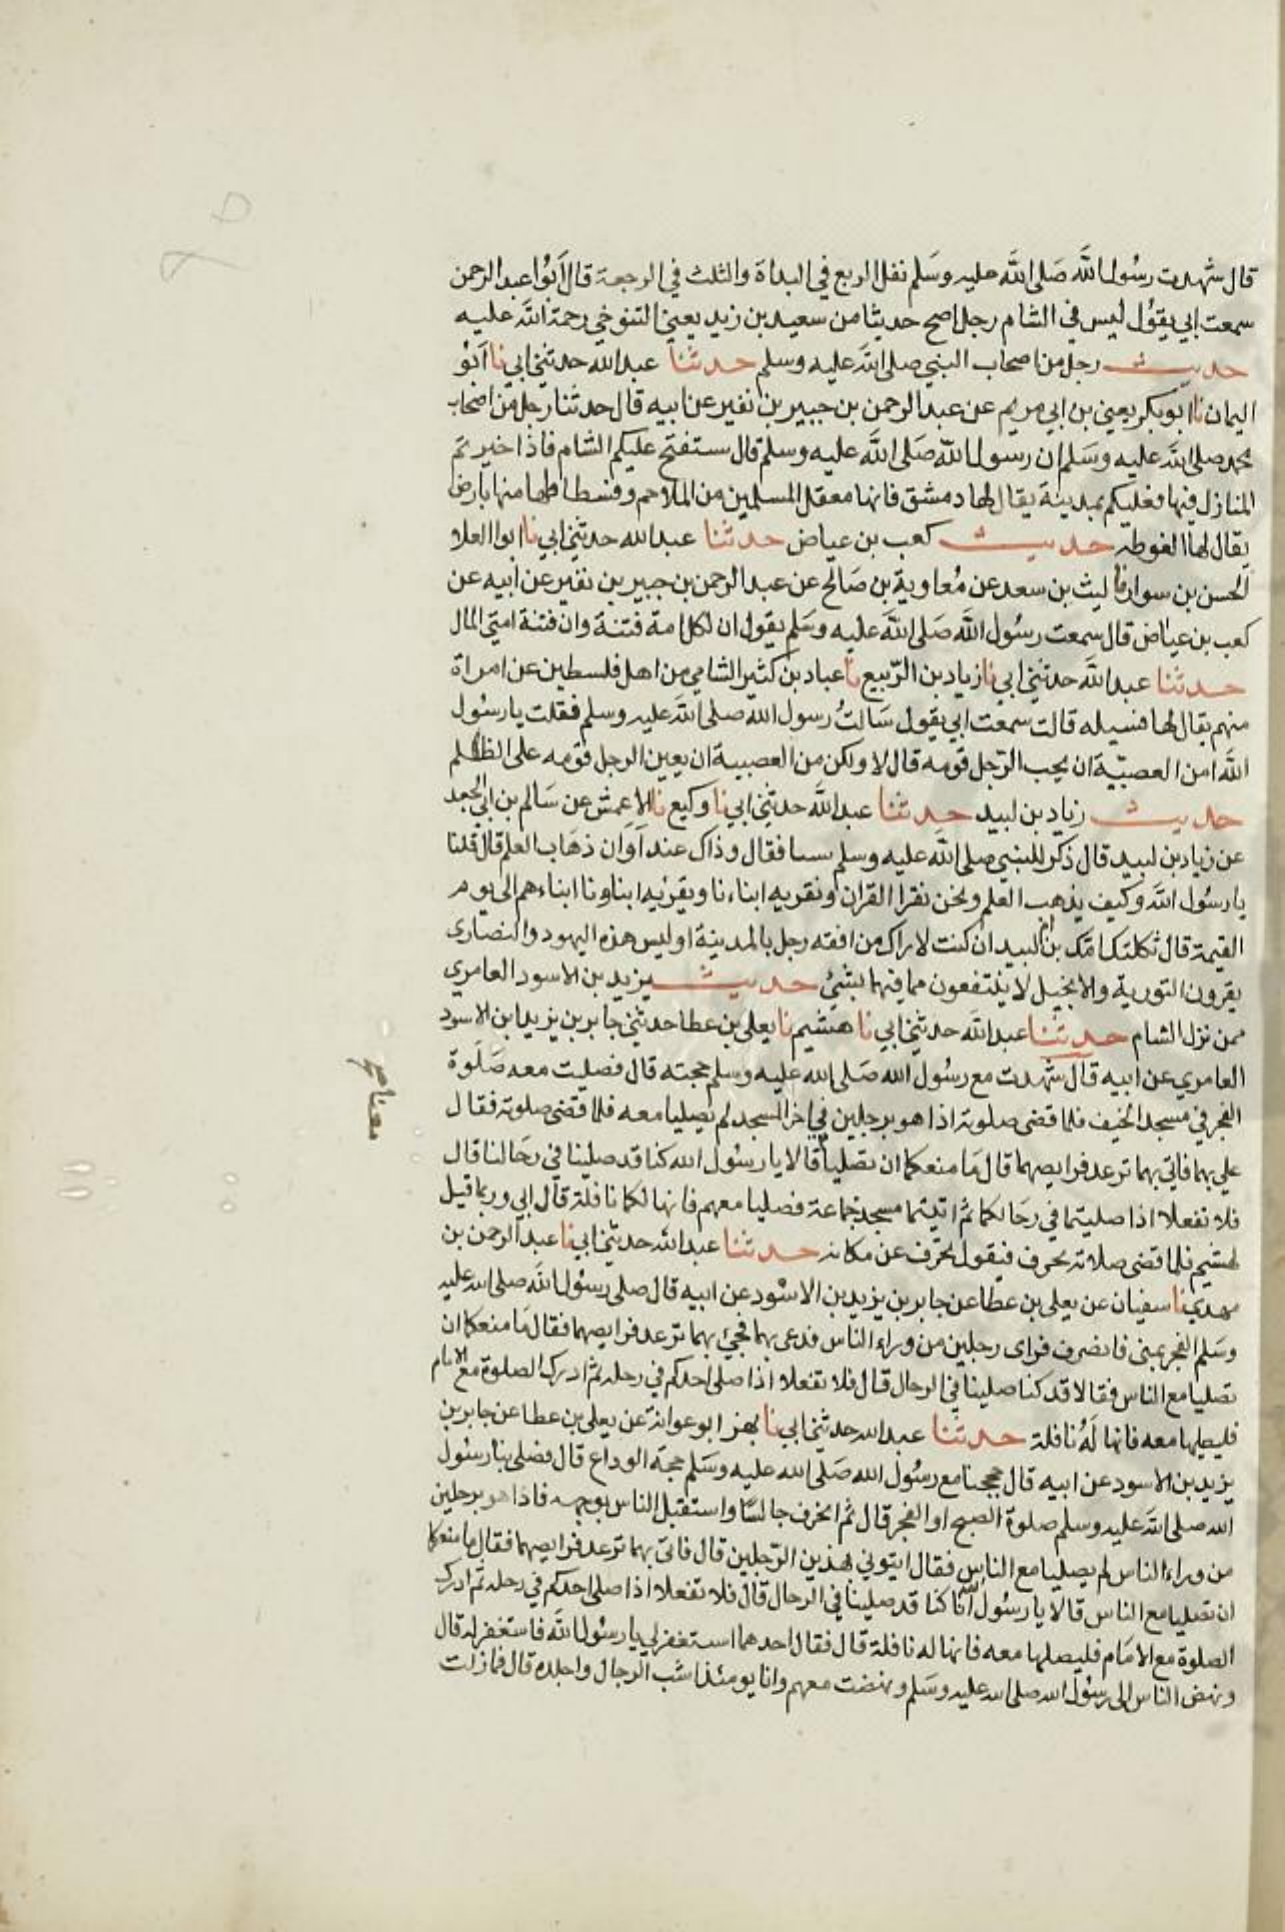 قال شهدت رسول الله صلى الله عليه وسلم نفل الربع في البداة والثلث في الرجعة قال أبوا عبد الرحمن
سمعت ابي يقول ليس في الشام رجل اصح حديثا من سعيد بن زيد يعني التنوخي رحمة الله عليه
حديث رجل من اصحاب النبي صلى الله عليه وسلم حدثنا عبد الله حدثني ابي نا أبو
اليمان نا ابو بكر يعني بن ابي مريم عن عبد الرحمن بن جبير بن نفير عن ابيه قال حدثنا رجل من اصحاب
محمد صلى الله عليه وسلم ان رسول الله صلى الله عليه وسلم قال ستفتح عليكم الشام فاذا خيرتم
المنازل فيها فعليكم بمدينة يقال لها دمشق فانها معقل المسلمين من الملاحم وفسطاطها منها بارض
يقال لها الغوطه حديث كعب بن عياض حدثنا عبد الله حدثني ابي نا ابوا العلا
الحسن بن سوار نا ليث بن سعد عن معاوية بن صالح عن عبد الرحمن بن جبير بن نفير عن ابيه عن
كعب بن عياض قال سمعت رسول الله صلى الله عليه وسلم يقول ان لكل امة فتنة وان فتنة امتي المال
حدثنا عبد الله حدثني ابي نا زياد بن الربيع نا عباد بن كثير الشامي من اهل فلسطين عن امراة
منهم يقال لها فسيله قالت سمعت ابي يقول سالت رسول الله صلى الله عليه وسلم فقلت يا رسول
الله امن العصبية ان يحب الرجل قومه قال لا ولكن من العصبية ان يعين الرجل قومه على الظلم
حديث زياد بن لبيد حدثنا عبد الله حدثني ابي نا وكيع نا الاعمش عن سالم بن ابي الجعد
عن زياد بن لبيد قال ذكر للنبي صلى الله عليه وسلم سيا فقال وذاك عند أوان ذهاب العلم قال قلنا
يا رسول الله وكيف يذهب العلم ونحن نقرا القران ونقريه ابناءنا ويقريه ابناونا ابناءهم الى يوم
القيمة قال ثكلتك امك بن ام لبيد ان كنت لاراك من افقه رجل بالمدينة اوليس هذه اليهود والنصارى
يقرون التورية والانجيل لا ينتفعون مما فيهما بشئ حديث يزيد بن الاسود العامري
ممن نزل الشام حدثنا عبد الله حدثني ابي نا هشيم نا يعلى بن عطا حدثني جابر بن يزيد ابن الاسود
العامري عن ابيه قال شهدت مع رسول الله صلى الله عليه وسلم حجته قال فصليت معه صلوة
الفجر في مسجد الخيف فلما قضى صلوته اذا هو برجلين في اخر المسجد لم يصليا معه فلما قضى صلوته فقال
علي بهما فاتي بهما ترعد فرايصهما قال ما منعكما ان تصليا قالا يا رسول الله كنا قد صلينا في رحالنا قال
فلا تفعلا اذا صليتما في رحالكما ثم اتيتما مسجد جماعة فصليا معهم فانها لكما نافلة قال ابي وربما قيل
لهشيم فلما قضى صلاته تحرف فيقول تحرف عن مكانه حدثنا عبد الله حدثني ابي نا عبد الرحمن بن
مهدي نا سفيان عن يعلى بن عطا عن جابر بن يزيد بن الاسود عن ابيه قال صلى رسول الله صلى الله عليه
وسلم الفجر بمنى فانصرف فراى رجلين من وراء الناس فدعى بهما فجئ بهما ترعد فرايصهما فقال ما منعكما ان
تصليا مع الناس فقالا قد كنا صلينا في الرحال قال فلا تفعلا اذا صلى احدكم في رحله ثم ادرك الصلوة مع الامام
فليصليها معه فانها له نافلة حدثنا عبد الله حدثني ابي نا بهز ابو عوانة عن يعلى بن عطا عن جابر بن
يزيد بن الاسود عن ابيه قال حججنا مع رسول الله صلى الله عليه وسلم حجة الوداع قال فصلى بنا رسول
الله صلى الله عليه وسلم صلوة الصبح او الفجر قال ثم انحرف جالسا واستقبل الناس بوجهه فاذا هو برجلين
من وراء الناس لم يصليا مع الناس فقال ايتوني بهذين الرجلين قال فاتى بهما ترعد فرايصهما فقال ما منعكما
ان تصليا مع الناس قالا يا رسول الله انا كنا قد صلينا في الرحال قال فلا تفعلا اذا صلى احدكم في رحله ثم ادرك
الصلوة مع الامام فليصلها معه فانها له نافلة قال فقال احدهما استغفر لي يا رسول الله فاستغفر له قال
ونهض الناس الى رسول الله صلى الله عليه وسلم ونهضت معهم وانا يومئذ اشب الرجال واجلده قال فما زلت